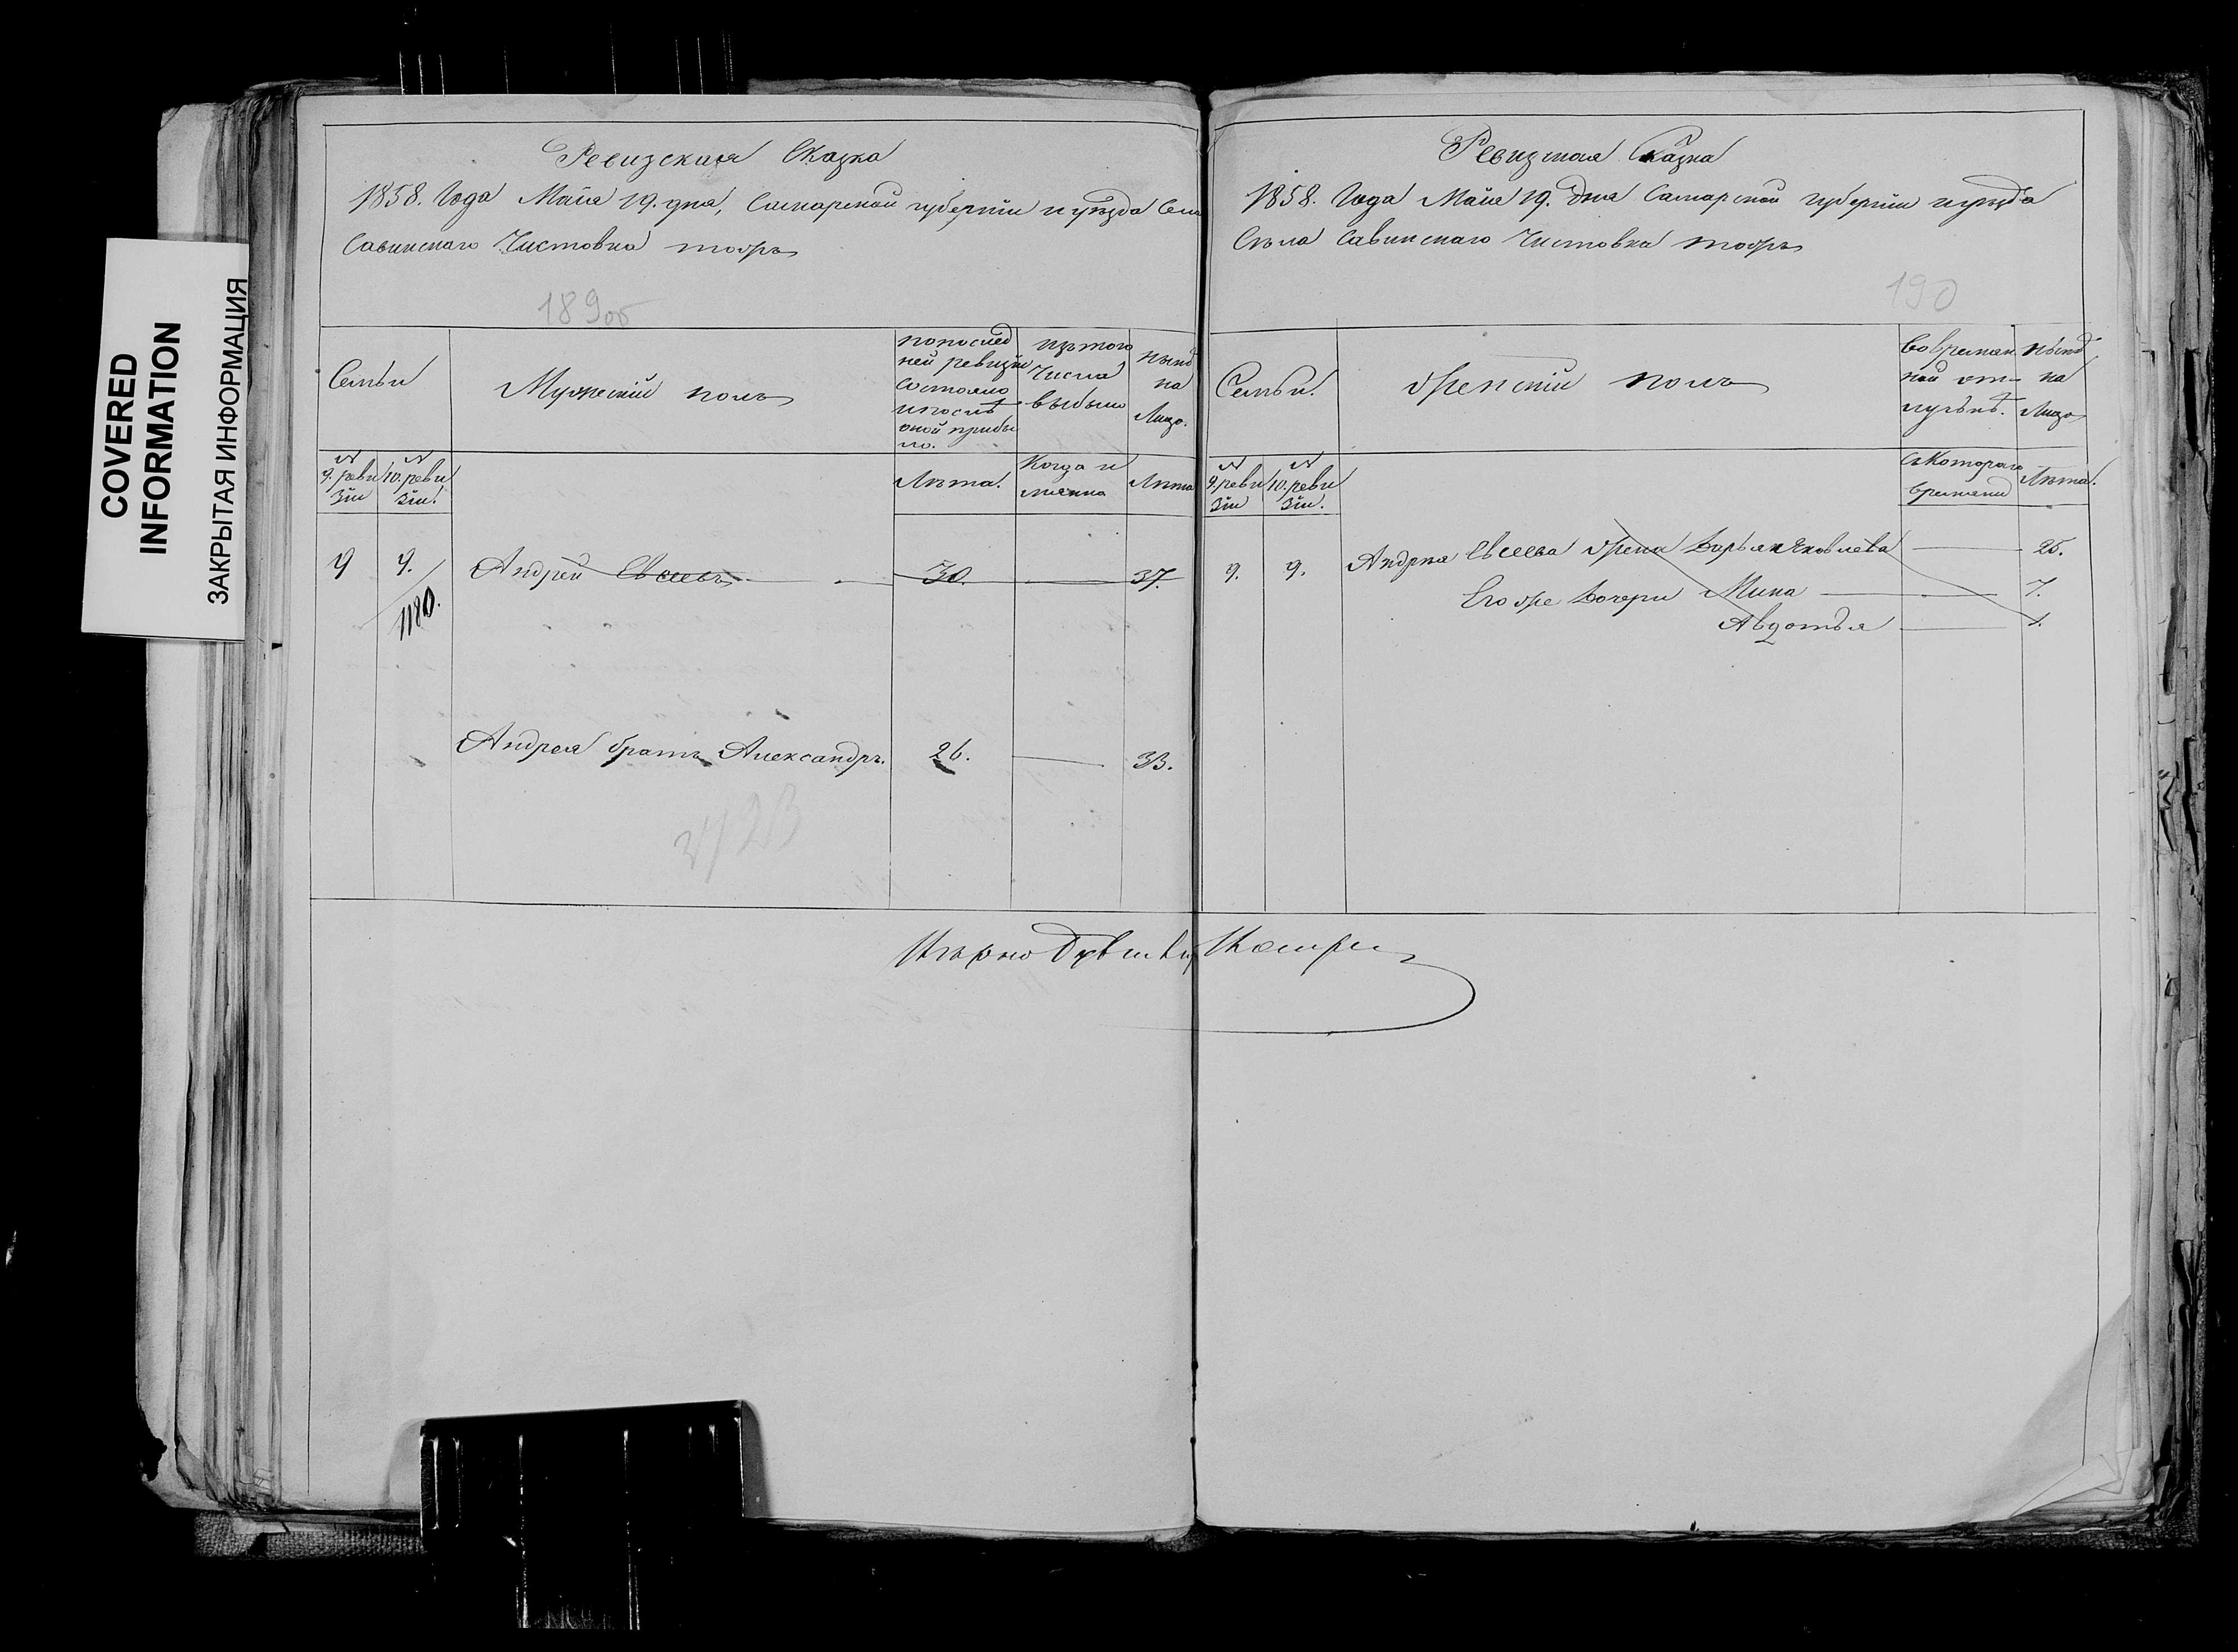 COVERED
INFORMATION
ЗАКРЫТАЯ ИНФОРМАЦИЯ
Ревизская Сказка
1858. Года Маія 19. дня, Самарской губерніи и уѣзда Села
Савинскаго Чистовка тожъ
189об
Семьи
Мужескій полъ
по послед
ней ревизіи
состояло
и послѣ
оной прибы
ло.
изъ того
числа
выбыло
нынѣ
на
Лицо.
№
9. реви
зіи
№
10. реви
зіи.
Лѣта.
Когда и
имянно
Лѣта
9
9.
1180.
Андрей Евсеевъ
30.
37.
Андрея братъ Александръ.
26.
33.
Ревизская Сказка
1858. Года Маія 19. дня Самарской губерніи и уѣзда
Сѣла Савинскаго Чистовка тожъ
190
Семьи.
Женскій полъ
Во времян
ной от-
лучкѣ.
нынѣ
на
Лицо
№
9. реви
зіи
№
10. реви
зіи.
съ Котораго
времяни
Лѣта.
9.
9.
Андрея Евсеева жена Дарья Яковлева
25.
Его же дочери
7.
Авдотья
1.